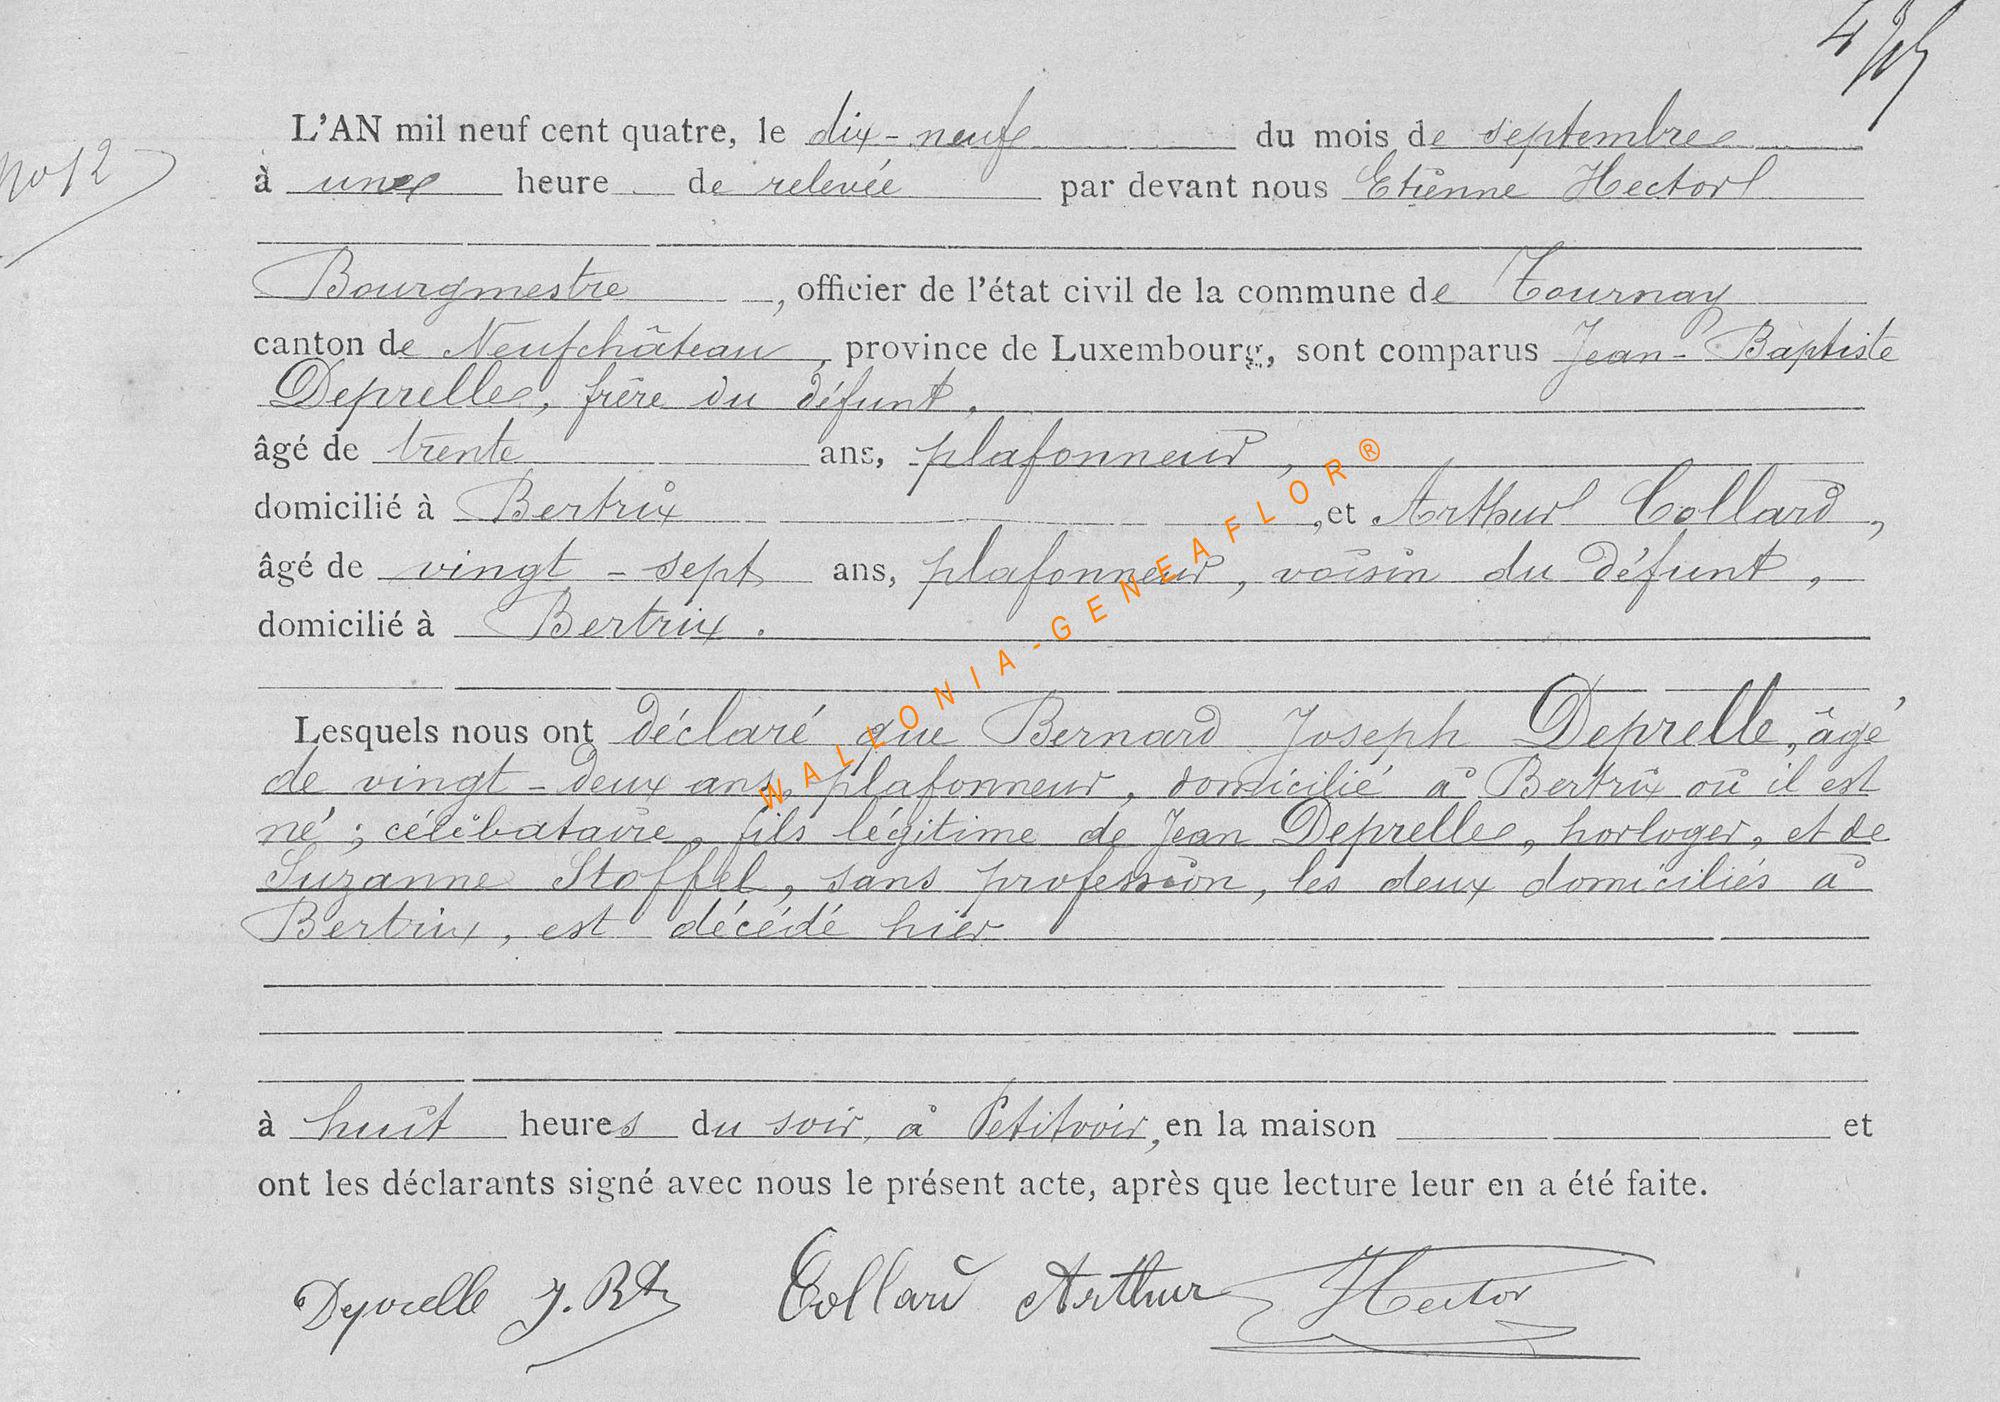 No 12
L'AN mil neuf cent quatre, le dix-neuf du mois de septembre
à une heure de relevée par devant nous Etienne Hector
Bourgmestre, officier de l'état civil de la commune de Tournay
canton de Neufchâteau, province de Luxembourg, sont comparus Jean-Baptiste
Deprelle, frère du défunt,
âgé de trente ans, plafonneur,
domicilié à Bertrix, et Arthur Collard,
âgé de vingt-sept ans, plafonneur, voisin du défunt,
domicilié à Bertrix.
Lesquels nous ont déclaré que Bernard Joseph Deprelle, âgé
de vingt-deux ans, plafonneur, domicilié à Bertrix où il est
né; célibataire, fils légitime de Jean Deprelle, horloger, et de
Suzanne Stoffel, sans profession, les deux domiciliés à
Bertrix, est décédé hier
à huit heures du soir, à Petitvoir, en la maison et
ont les déclarants signé avec nous le présent acte, après que lecture leur en a été faite.
Deprelle J. Bte Collard Arthur Hector
WALLONIA-GENEAFLOR®